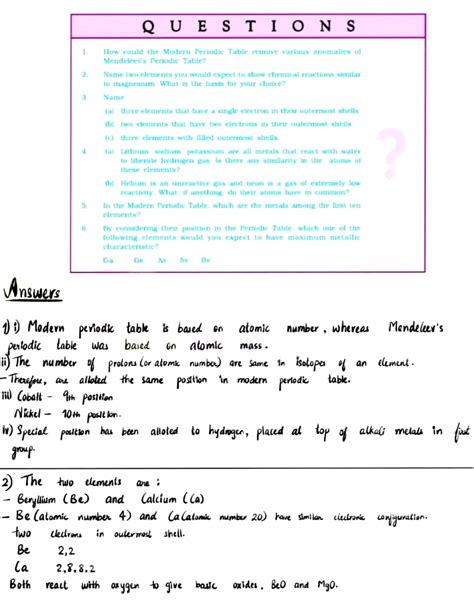 QUESTIONS
1. How could the Modern Periodic Table remove various anomalies of
Mendeléev's Periodic Table?
2. Name two elements you would expect to show chemical reactions similar
to magnesium. What is the basis for your choice?
3. Name
(a) three elements that have a single electron in their outermost shells.
(b) two elements that have two electrons in their outermost shells.
(c) three elements with filled outermost shells.
4. (a) Lithium, sodium, potassium are all metals that react with water
to liberate hydrogen gas. Is there any similarity in the atoms of
these elements?
(b) Helium is an unreactive gas and neon is a gas of extremely low
reactivity. What, if anything, do their atoms have in common?
5. In the Modern Periodic Table, which are the metals among the first ten
elements?
6. By considering their position in the Periodic Table, which one of the
following elements would you expect to have maximum metallic
characteristic?
Ga Ge As Se Be
?
Answers
1) i) Modern periodic table is based on atomic number, whereas Mendeleev's
periodic table was based on atomic mass.
ii) The number of protons (or atomic number) are same in isotopes of an element.
- Therefore, are alloted the same position in modern periodic table.
iii) Cobalt - 9th position
Nickel - 10th position.
iv) Special position has been alloted to hydrogen, placed at top of alkali metals in first
group.
2) The two elements are :
- Beryllium (Be) and Calcium (Ca)
- Be (atomic number 4) and Ca (atomic number 20) have similar electronic configuration.
two electrons in outermost shell.
Be 2,2
Ca 2,8,8,2
Both react with oxygen to give basic oxides, BeO and MgO.